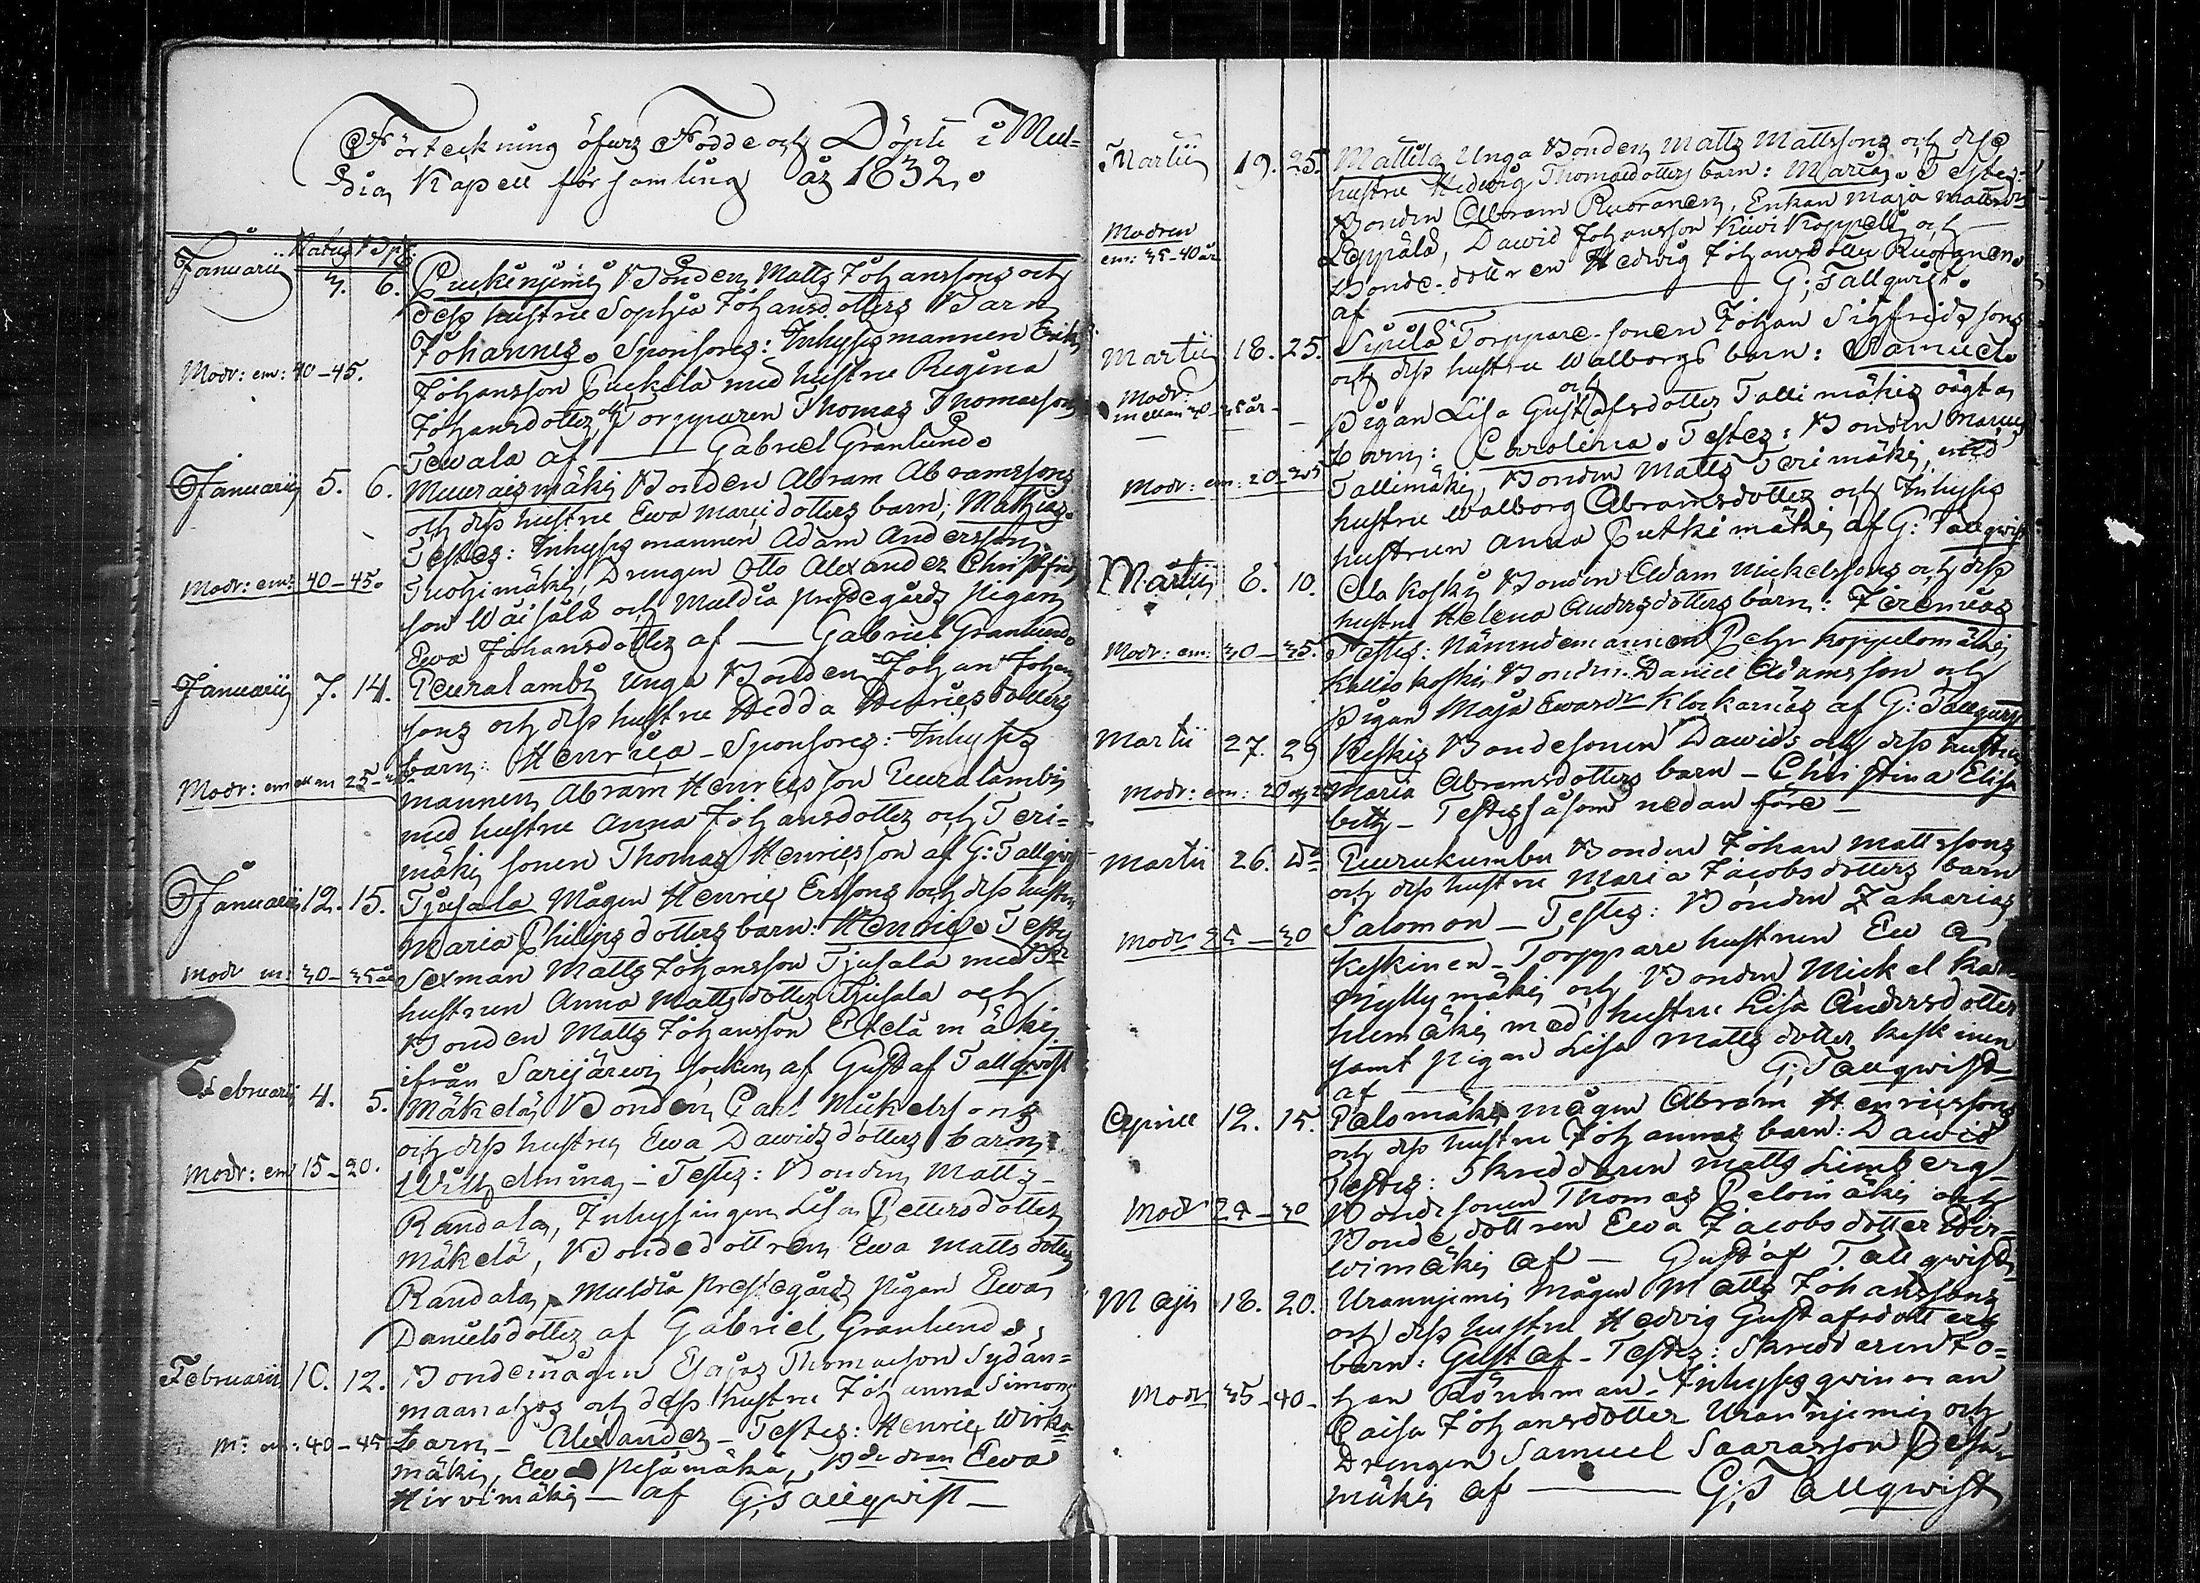 Förteckning öfver Födde och Döpte i Mul-
dia Kapell församling år 1832.
Januarii Natus Döpt
3. 6. Bonden Matts Johanssons och
dess hustru Sophia Johansdotters Barn
Johannes. Sponsores: Inhyses mannen Erik
Modr: em: 40-45. Johansson Puckila med hustru Regina
Johansdotter, och Torpparen Thomas Thomasson
Tewala af — Gabriel Granlund.
Januarii 5. 6. Muuraismäki Bonden Abram Abramssons
och dess hustru Ewa Mariedotters barn; Mathias.
Testes: Inhyses mannen Adam Andersson
Modr: em: 40-45. Tuohimäki, Drengen Otto Alexander
son och Muldia prestegårds pigan
Ewa Johansdotter af — Gabriel Granlund.
Januarii 7. 14. Peuralambi Unga Bonden Johan Johans
sons och dess hustru Hedda Henricsdotters
barn: Henrica - Sponsores: Inhyses
Modr: em 25- mannen Abram Henricsson Peuralambi
med hustru Anna Johansdotter och Teri-
mäki sonen Thomas Henricsson af G: Tallqvist
Januarii 12. 15. Tjusala Mågen Henric Erssons och dess hustru
Maria Philipsdotters barn: Henric. Testes
Modr em: 30-35 år Sexman Matts Johansson Tjusala med
hustrun Anna Mattsdotter Tjusala och
Bonden Matts Johansson Etelämäki
ifrån Sarijärwi Socken, af Gustaf Tallqvist
Februarii 4. 5. Mäkelä, Bonden Carl Mickelssons
och dess hustru Ewa Dawidsdotters barn
Modr: em 15-20. Wilhelmina - Testes: Bonden Matts
Randala, Inhysingen Lisa Pettersdotter
Mäkelä, Bondedottren Ewa Mattsdotter
Randala, Muldia prestegårds pigan Ewa
Danielsdotter af Gabriel Granlund.
Februarii 10. 12. Bondemågen Esajas Thomasson Sydän-
maanahos och dess hustru Johanna Simons
Mr em: 40-45 barn - Alexander - Testes: Henric
mäki, Ewa Pesämäki, Ewa
Hirvimäki — af G: Tallqwist —
Martii 19. 25. Mattila Unga Bonden Matts Mattssons och dess
hustru Hedwig Thomasdotters barn: Maria. Testes:
Bonden Abram Ruoranen, Enkan Maja Mattsdr
Modren
em: 35-40 år Leppälä, Dawid Johansson Kiwi Koppelå och
Bonde-dottren Hedwig Johansdotter Ruoranen.
af — G: Tallqwist.
Martii 18. 25. Sipilä Torppare-sonen Johan Sigfridssons
och dess hustru Walborgs barn: Samuel.
Modr:
mellan 40-45 år och
pigan Lisa Gustafsdotter Tallimäkis oägta
barn: Carolina. Testes: Bonden
Modr: em: 20-25 Tallimäki, Bonden Matts Terimäki, med
hustru Walborg Abramsdotter och Inhyses
hustrun Anna Putkimäki af G: Tallqwist
Martii 8. 10. Ala Koski Bonden Adam Mickelssons och dess
hustru Helena Andersdotters barn: Jeremias
Modr: em: 30-35. Testes: Nämndemannen Pehr Koppelomäki
Kalliokoski Bonden Daniel Adamsson och
pigan Maja Klockarnäs af G: Tallqwist
Martii 27. 29 Keskis Bondesonen Dawids och dess hustru
Modr: em: 20 och 25 Maria Abramsdotters barn - Christina Elisa
beth - Testes såsom nedan före —
Martii 26. Do Puurukumbu Bonden Johan Mattssons
och dess hustru Maria Jacobsdotters barn
Modr 25-30 Salomon - Testes: Bonden Zakarias
Keskinen - Torppare hustrun Ewa
Myllymäki och Bonden Mickel
mäki med hustru Lisa Andersdotter
samt pigan Lisa Mattsdotter Keskinen
af — G: Tallqwist
Aprill 12. 15. Palomäki mågen Abram Henricssons
och dess hustru Johannas barn: Dawid
Testes: Skreddaren Matts Limberg
Modr 29-30 Bondesonen Thomas Palomäki och
Bondedottren Ewa Jacobsdotter
wimäki af — Gustaf Tallqwist
Maji 18. 20. Urannjemi Mågen Matts Johanssons
och dess hustru Hedvig Gustafsdotters
barn: Gustaf - Testes: Skreddaren Jo-
Modr 35-40- han Rönnman - Inhyses qwinnan
Caisa Johansdotter Urannjemi och
Drengen Samuel Saarasson
mäki af — G: Tallqwist